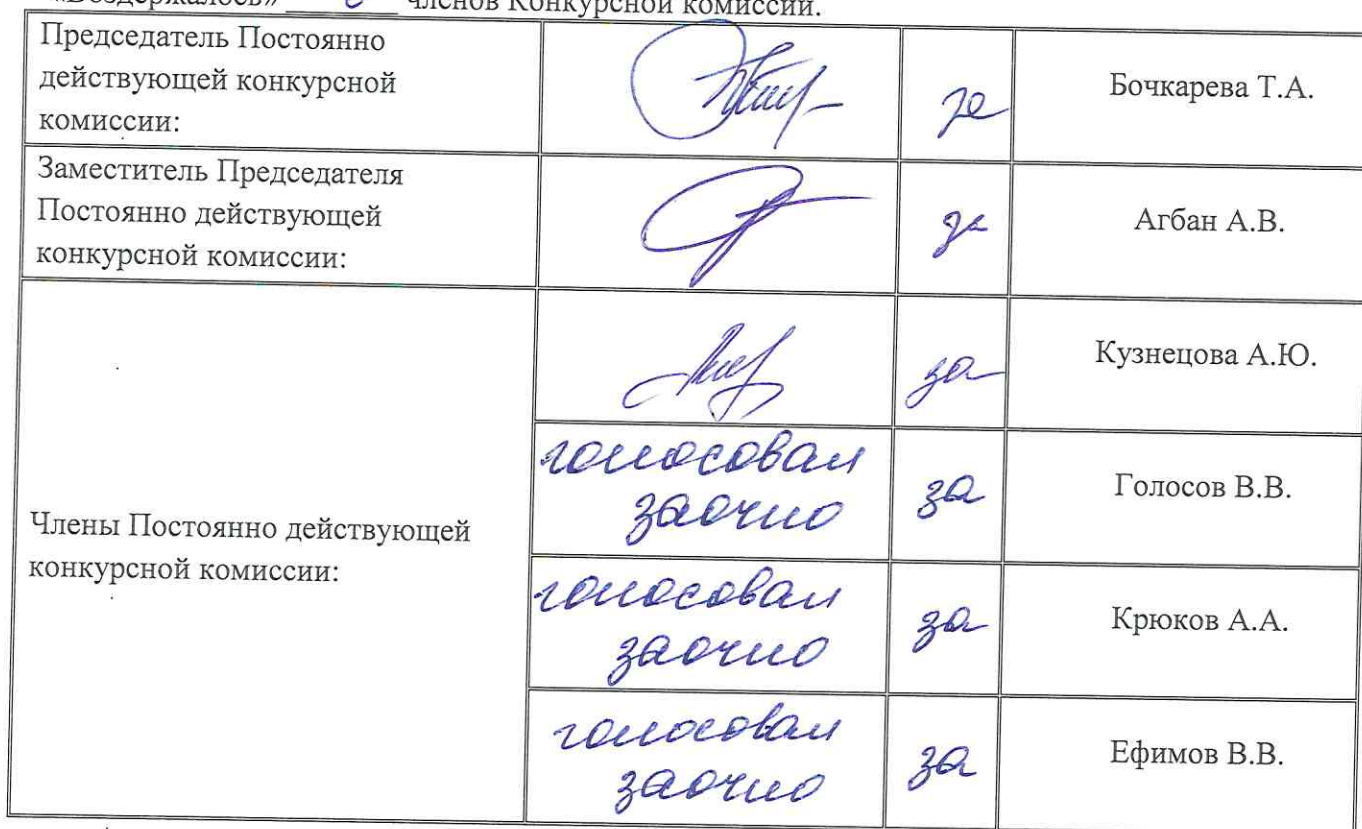 «Воздержалось» членов Конкурсной комиссии.
Председатель Постоянно
действующей конкурсной
комиссии:
за
Бочкарева Т.А.
Заместитель Председателя
Постоянно действующей
конкурсной комиссии:
за
Агбан А.В.
Члены Постоянно действующей
конкурсной комиссии:
за
Кузнецова А.Ю.
голосовал
заочно
за
Голосов В.В.
голосовал
заочно
за
Крюков А.А.
голосовал
заочно
за
Ефимов В.В.